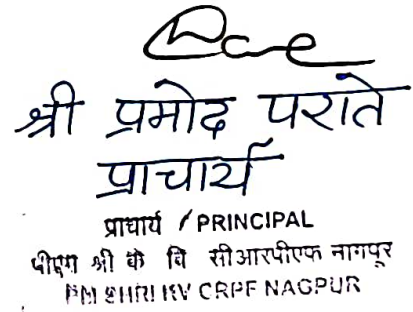 श्री प्रमोद पराते
प्राचार्य
प्राचार्य / PRINCIPAL
पीएम श्री के वि सीआरपीएफ नागपूर
PM SHRI KV CRPF NAGPUR